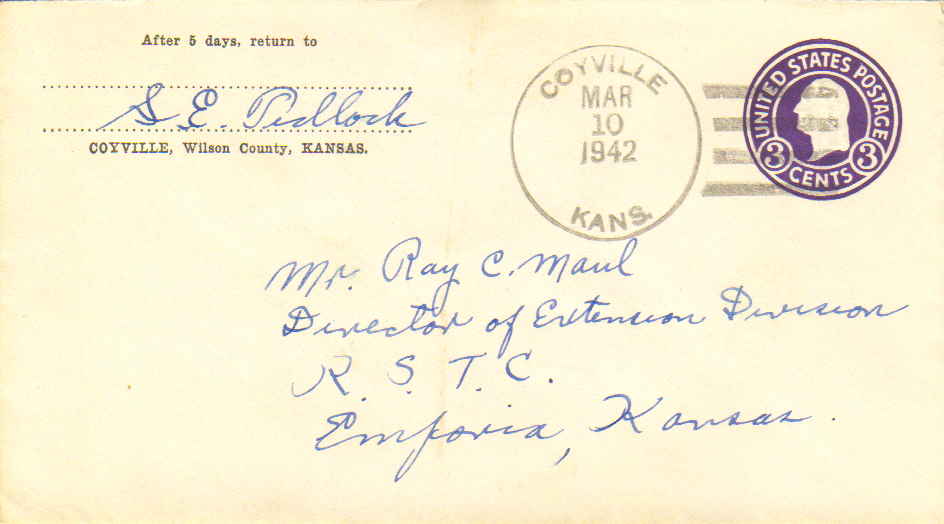 After 5 days, return to
S. E. Pedlock
COYVILLE, Wilson County, KANSAS.
COYVILLE
MAR
10
1942
KANS.
UNITED STATES POSTAGE
3 CENTS 3
Mr. Ray C. Maul
Director of Extension Division
K. S. T. C.
Emporia, Kansas.